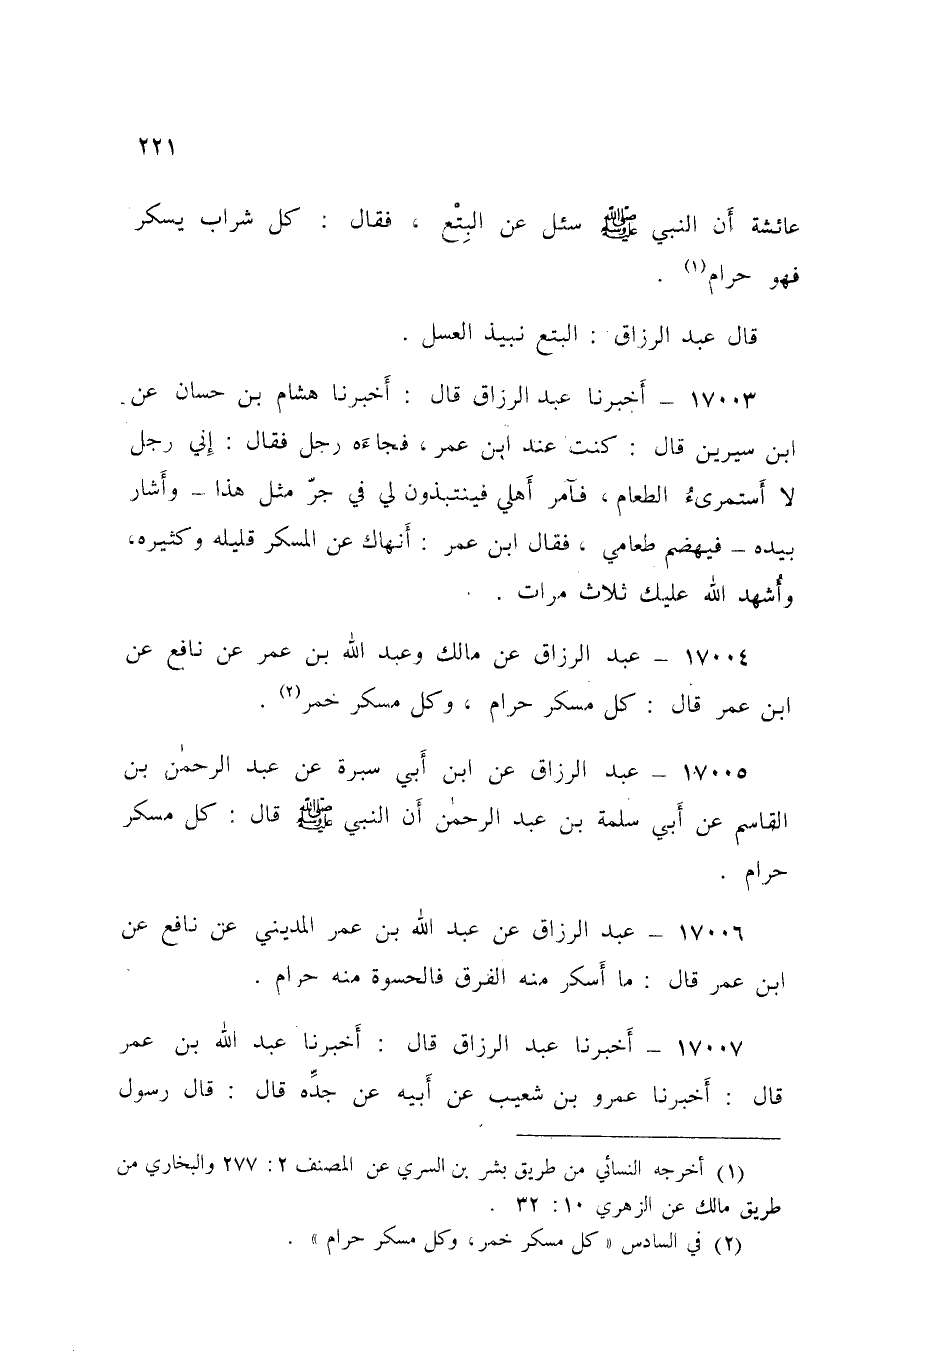 ٢٢١
عائشة أن النبي ﷺ سئل عن البِتْع ، فقال : كل شراب يسكر
فهو حرام(١) .
قال عبد الرزاق : البتع نبيذ العسل .
١٧٠٠٣ – أخبرنا عبد الرزاق قال : أخبرنا هشام بن حسان عن
ابن سيرين قال : كنت عند ابن عمر ، فجاءه رجل فقال : إني رجل
لا أستمرىءُ الطعام ، فآمر أهلي فينتبذون لي في جرّ مثل هذا – وأشار
بيده – فيهضم طعامي ، فقال ابن عمر : أنهاك عن المسكر قليله وكثيره،
وأُشهد الله عليك ثلاث مرات .
١٧٠٠٤ – عبد الرزاق عن مالك وعبد الله بن عمر عن نافع عن
ابن عمر قال : كل مسكر حرام ، وكل مسكر خمر(٢) .
١٧٠٠٥ – عبد الرزاق عن ابن أبي سبرة عن عبد الرحمٰن بن
القاسم عن أبي سلمة بن عبد الرحمٰن أن النبي ﷺ قال : كل مسكر
حرام .
١٧٠٠٦ – عبد الرزاق عن عبد الله بن عمر المديني عن نافع عن
ابن عمر قال : ما أسكر منه الفرق فالحسوة منه حرام .
١٧٠٠٧ – أخبرنا عبد الرزاق قال : أخبرنا عبد الله بن عمر
قال : أخبرنا عمرو بن شعيب عن أبيه عن جدِّه قال : قال رسول
(١) أخرجه النسائي من طريق بشر بن السري عن المصنف ٢ : ٢٧٧ والبخاري من
طريق مالك عن الزهري ١٠ : ٣٢ .
(٢) في السادس « كل مسكر خمر، وكل مسكر حرام » .